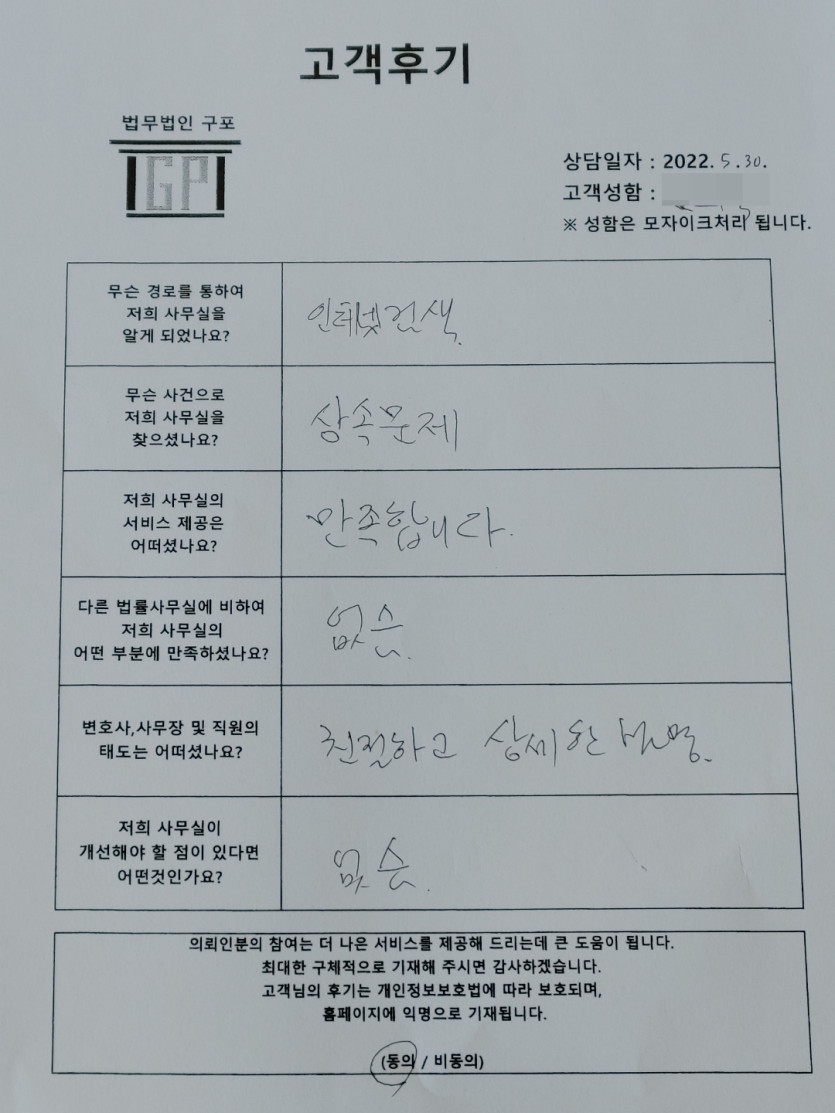 고객후기
법무법인 구포
GP
상담일자 : 2022. 5. 30.
고객성함 :
※ 성함은 모자이크처리 됩니다.
무슨 경로를 통하여
저희 사무실을
알게 되었나요?
인터넷검색.
무슨 사건으로
저희 사무실을
찾으셨나요?
상속문제
저희 사무실의
서비스 제공은
어떠셨나요?
만족합니다.
다른 법률사무실에 비하여
저희 사무실의
어떤 부분에 만족하셨나요?
없슨.
변호사,사무장 및 직원의
태도는 어떠셨나요?
친절하고 상세한
저희 사무실이
개선해야 할 점이 있다면
어떤것인가요?
없슨.
의뢰인분의 참여는 더 나은 서비스를 제공해 드리는데 큰 도움이 됩니다.
최대한 구체적으로 기재해 주시면 감사하겠습니다.
고객님의 후기는 개인정보보호법에 따라 보호되며,
홈페이지에 익명으로 기재됩니다.
(동의 / 비동의)